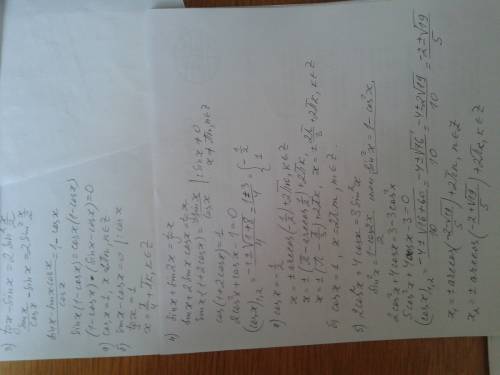 3) tgx - sinx = 2 sin² x/2
sinx/cosx - sinx = 2 sin² x/2
(sinx - sinx cosx)/cosx = 1 - cosx
sinx(1-cosx) = cosx(1-cosx)
(1-cosx)·(sinx-cosx)=0
а) cosx=1, x=2πn, n∈Z
б) sinx-cosx=0 | :cosx
tgx=1
x = π/4 + πk, k∈Z
4) sinx + sin2x = tgx
sinx + 2sinx cosx = tgx
sinx(1+2cosx) = sinx/cosx | : sinx ≠ 0
x ≠ πn, n∈Z
cosx(1+2cosx)=1
2cos²x + cosx - 1 = 0
(cosx)₁,₂ = (-1±√(1+8))/4 = (-1±3)/4
а) cosx = -1/2
x = ± arccos(-1/2) + 2πk, k∈Z
x = ± (π - arccos 1/2) + 2πk,
x = ± (π - π/3) + 2πk, x = ± 2π/3 + 2πk, k∈Z
б) cosx = 1, x = 2πn, n∈Z.
5) 2cos²x + 4cosx = 3sin²x
2cos²x + 4cosx = 3 - 3cos²x
5cos²x + 4cosx - 3 = 0
(cosx)₁,₂ = (-4±√(16+60))/10 = (-4±√76)/10 = (-4±2√19)/10 = (-2±√19)/5